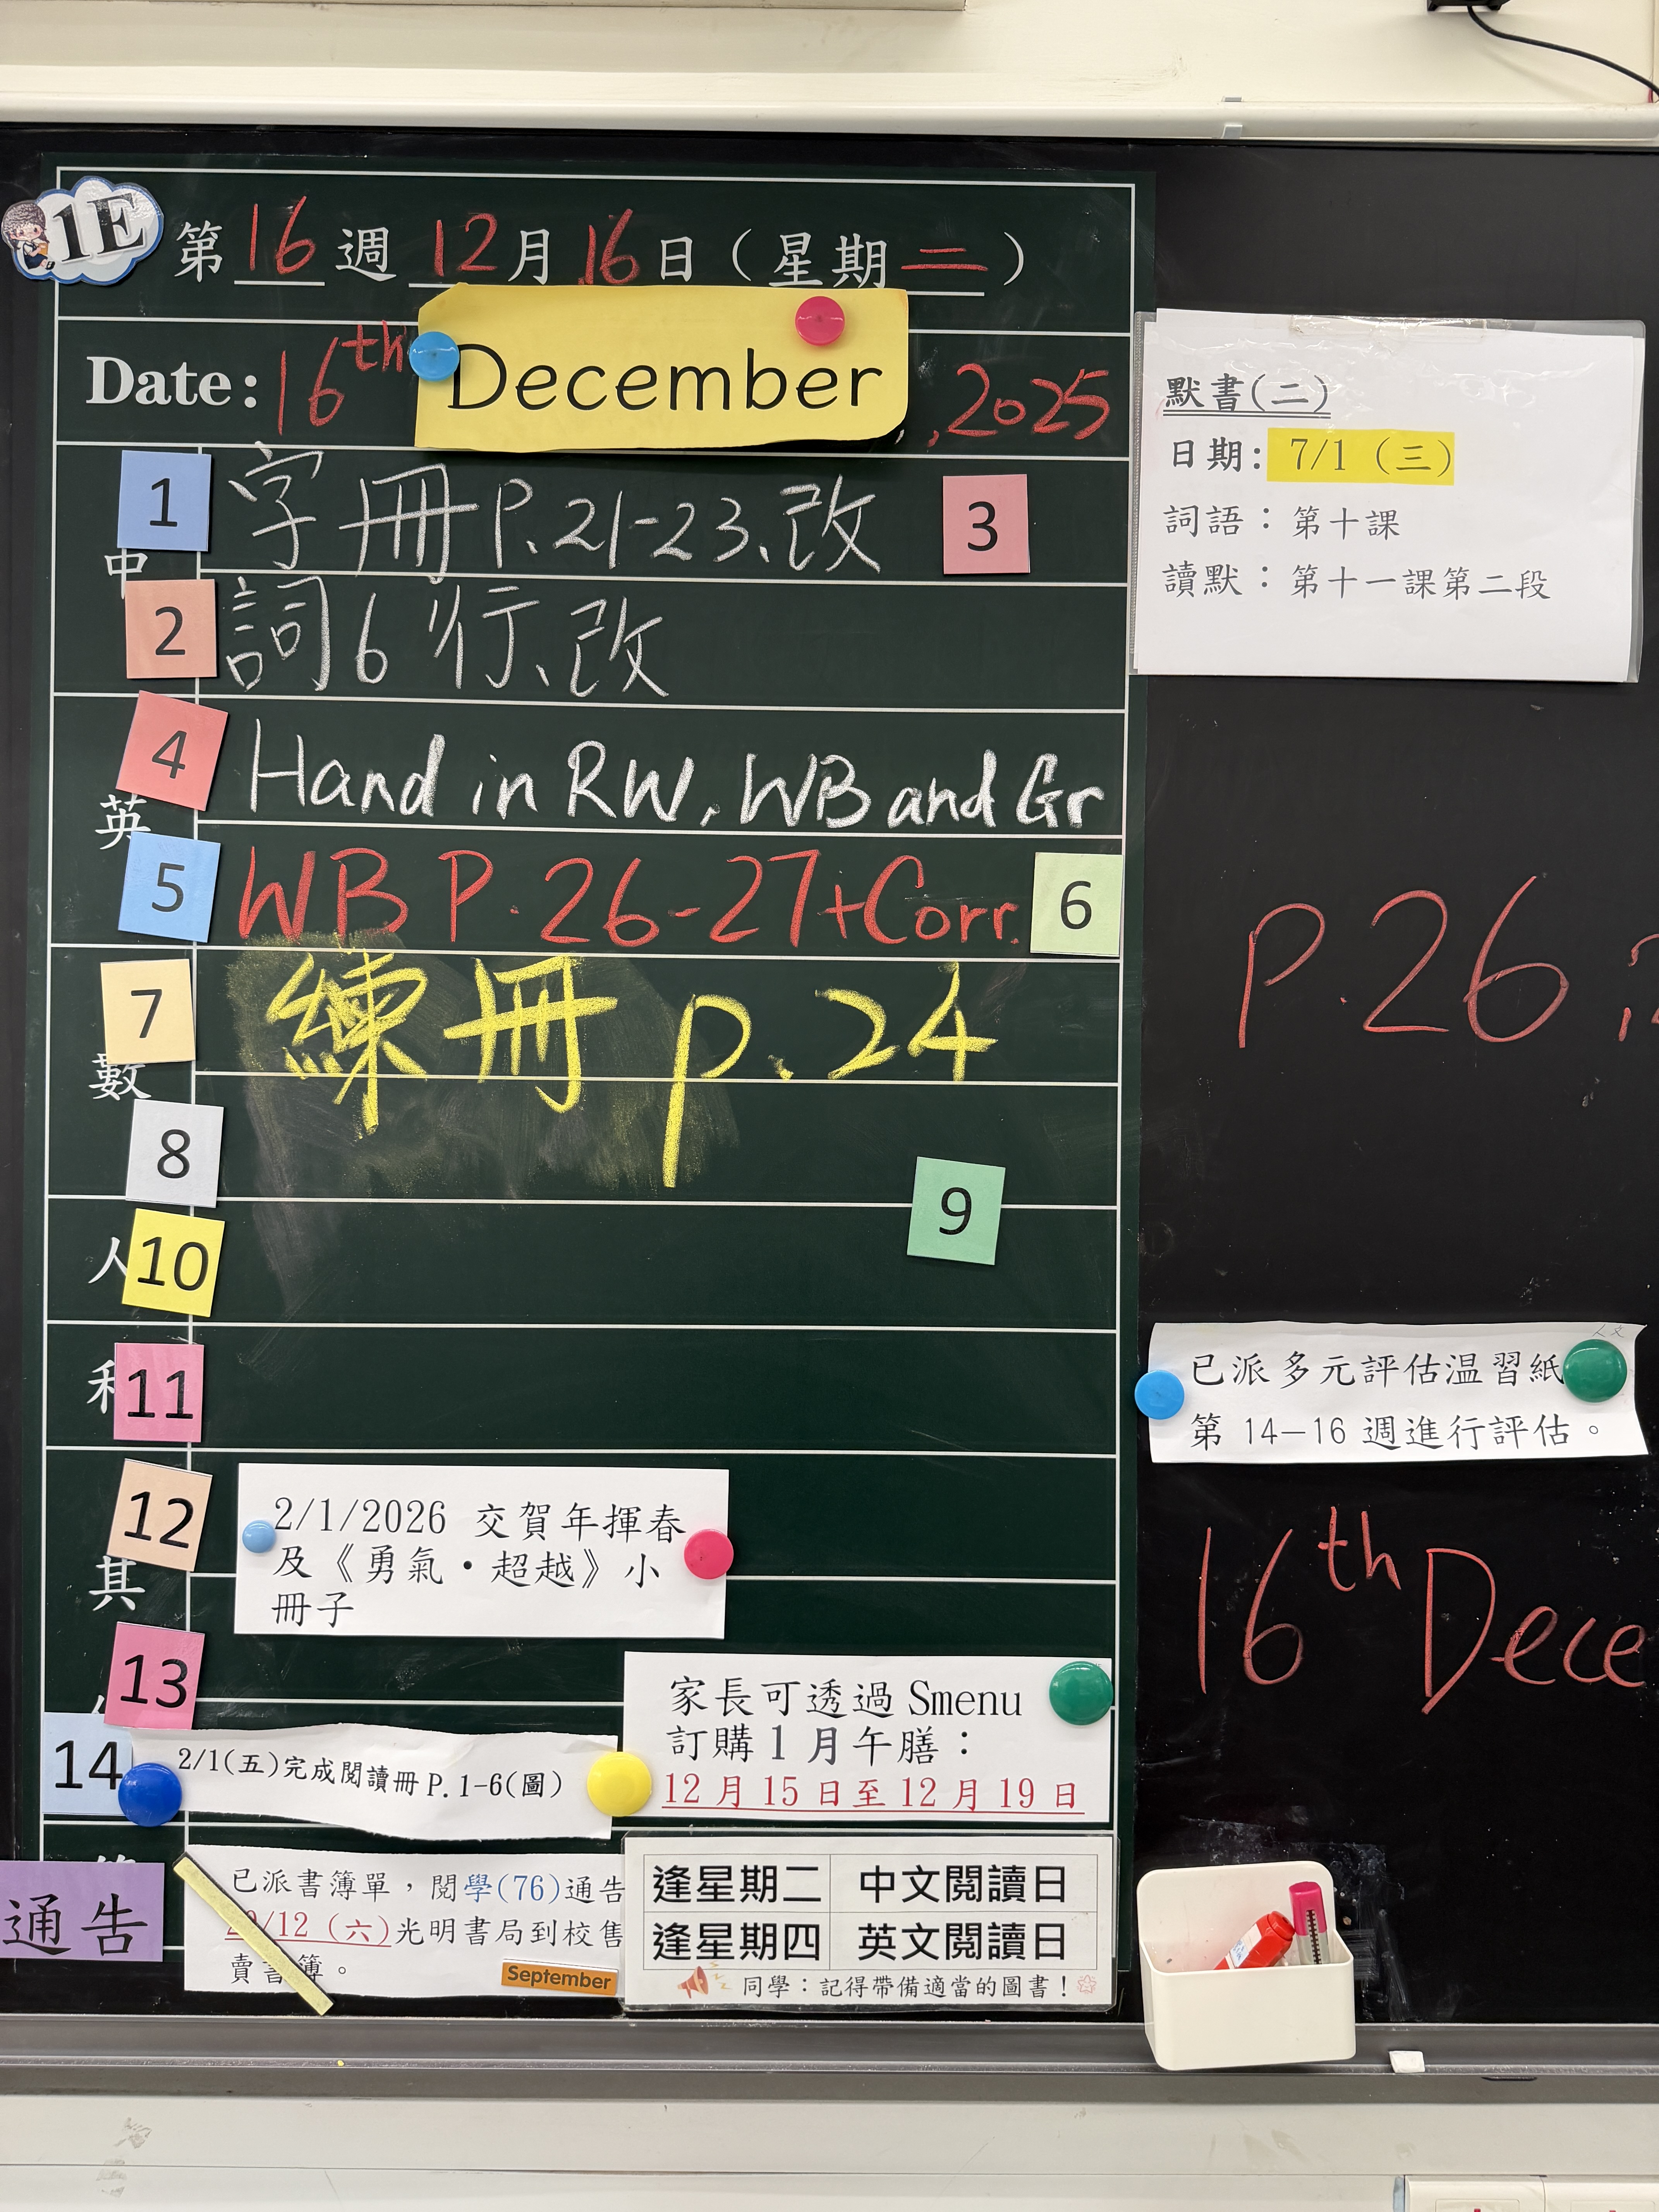 1E
第 16 週 12 月 16 日 ( 星期 二 )
Date: 16th December , 2025
中
1 字冊 P.21-23、改 3
2 詞 6 行、改
英
4 Hand in RW, WB and Gr
5 WB P.26-27+Corr. 6
數
7 練冊 p.24
8
9
人 10
11
12 2/1/2026 交賀年揮春
及《勇氣·超越》小
冊子
其
13
14 2/1(五)完成閱讀冊 P.1-6(圖)
家長可透過 Smenu
訂購 1 月午膳：
12 月 15 日至 12 月 19 日
通告
已派書簿單，閱學(76)通告
/12 (六)光明書局到校售
賣書簿。
September
逢星期二 中文閱讀日
逢星期四 英文閱讀日
同學：記得帶備適當的圖書！
默書(二)
日期: 7/1 (三)
詞語：第十課
讀默：第十一課第二段
P.26
人文
已派多元評估温習紙
第 14—16 週進行評估。
16th Dece